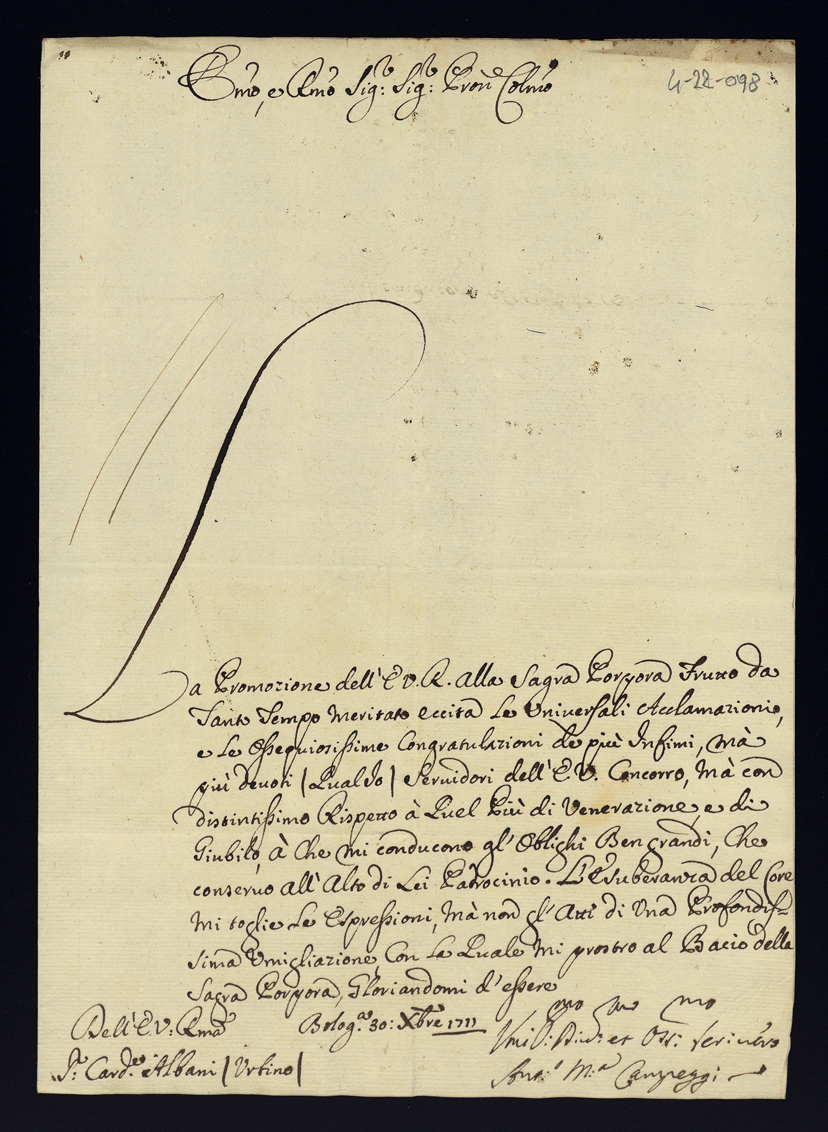 Emo, e Rmo Sig:r Sig:r Pron Colmo
4-22-098
La Promozione dell' E.V.R. alla Sagra Porpora Frutto da
Tanto Tempo Meritato eccita Le Universali Acclamazioni,
e Le Ossequiosissime Congratulazioni de più Infimi, mà
più devoti | Qual Io | Servidori dell' E.V. Concorro, Mà con
distintissimo Rispetto à Quel Più di Venerazione, e di
Giubilo, à Che Mi conducono gl' Oblighi Ben grandi, Che
conservo all' Alto di Lei Padrocinio. L'Esuberanza del Core
Mi toglie Le Espressioni, Mà non gl' Atti di Una Profondis=
sima Umigliazione, Con La Quale Mi prostro al Bacio della
Sagra Porpora, Gloriandomi d' essere
Dell' E.V: Rma Bolog.a 30: Xbre 1711
Umil:mo Div:mo et Obb:mo Servidore
S.r Card.le Albani | Urbino |
Ant:o M:a Campeggi